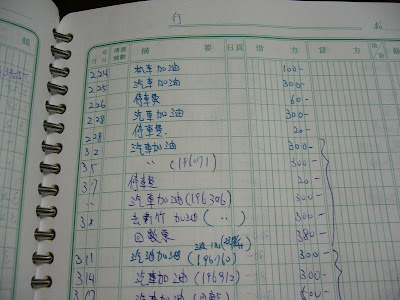 行 No.
年 月 日 傳票號數 摘 要 日頁 借 方 貸 方
2.24 机車加油 100-
2.25 汽車加油 300-
2.26 停車費 60-
2.28 汽車加油 300-
2.28 停車費. 20-
3.2 汽車加油 300-
3.5 〃 (196071) 300-
3.7 停車費 30-
〃 汽車加油(196306) 300-
3.8 去新竹 加油( 〃 ) 300-
回數票 380-
3.11 汽油加油 (196760) 300-
3.14 汽車加油 (196912) 300-
汽車加油 500-